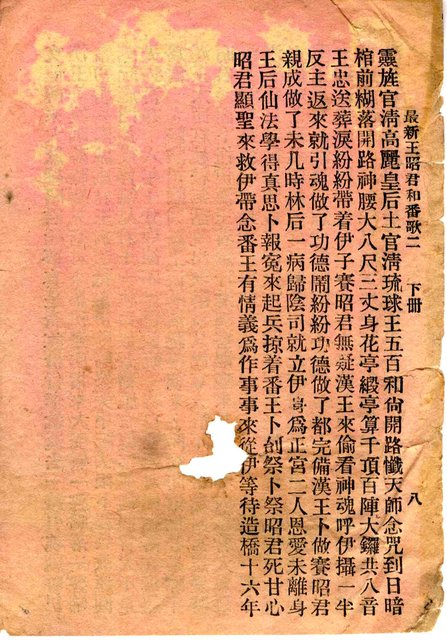 最新王昭君和番歌二 下册 八
靈旌官淸高麗皇后土官淸琉球王五百和尙開路懺天師念咒到日暗
棺前糊落開路神腰大八尺三丈身花亭緞亭算千頂百陣大鑼共八音
王忠送葬淚紛紛帶着伊子賽昭君無疑漢王來偷看神魂呼伊攝一半
反主返來就引魂做了功德鬧紛紛功德做了都完備漢王卜做賽昭君
親成做了未几時林后一病歸陰司就立伊身爲正宮二人恩愛未離身
王后仙法學得真思卜報冤來起兵掠着番王卜刣祭卜祭昭君死甘心
昭君顯聖來救伊帶念番王有情義爲作事事來從伊等待造橋十六年